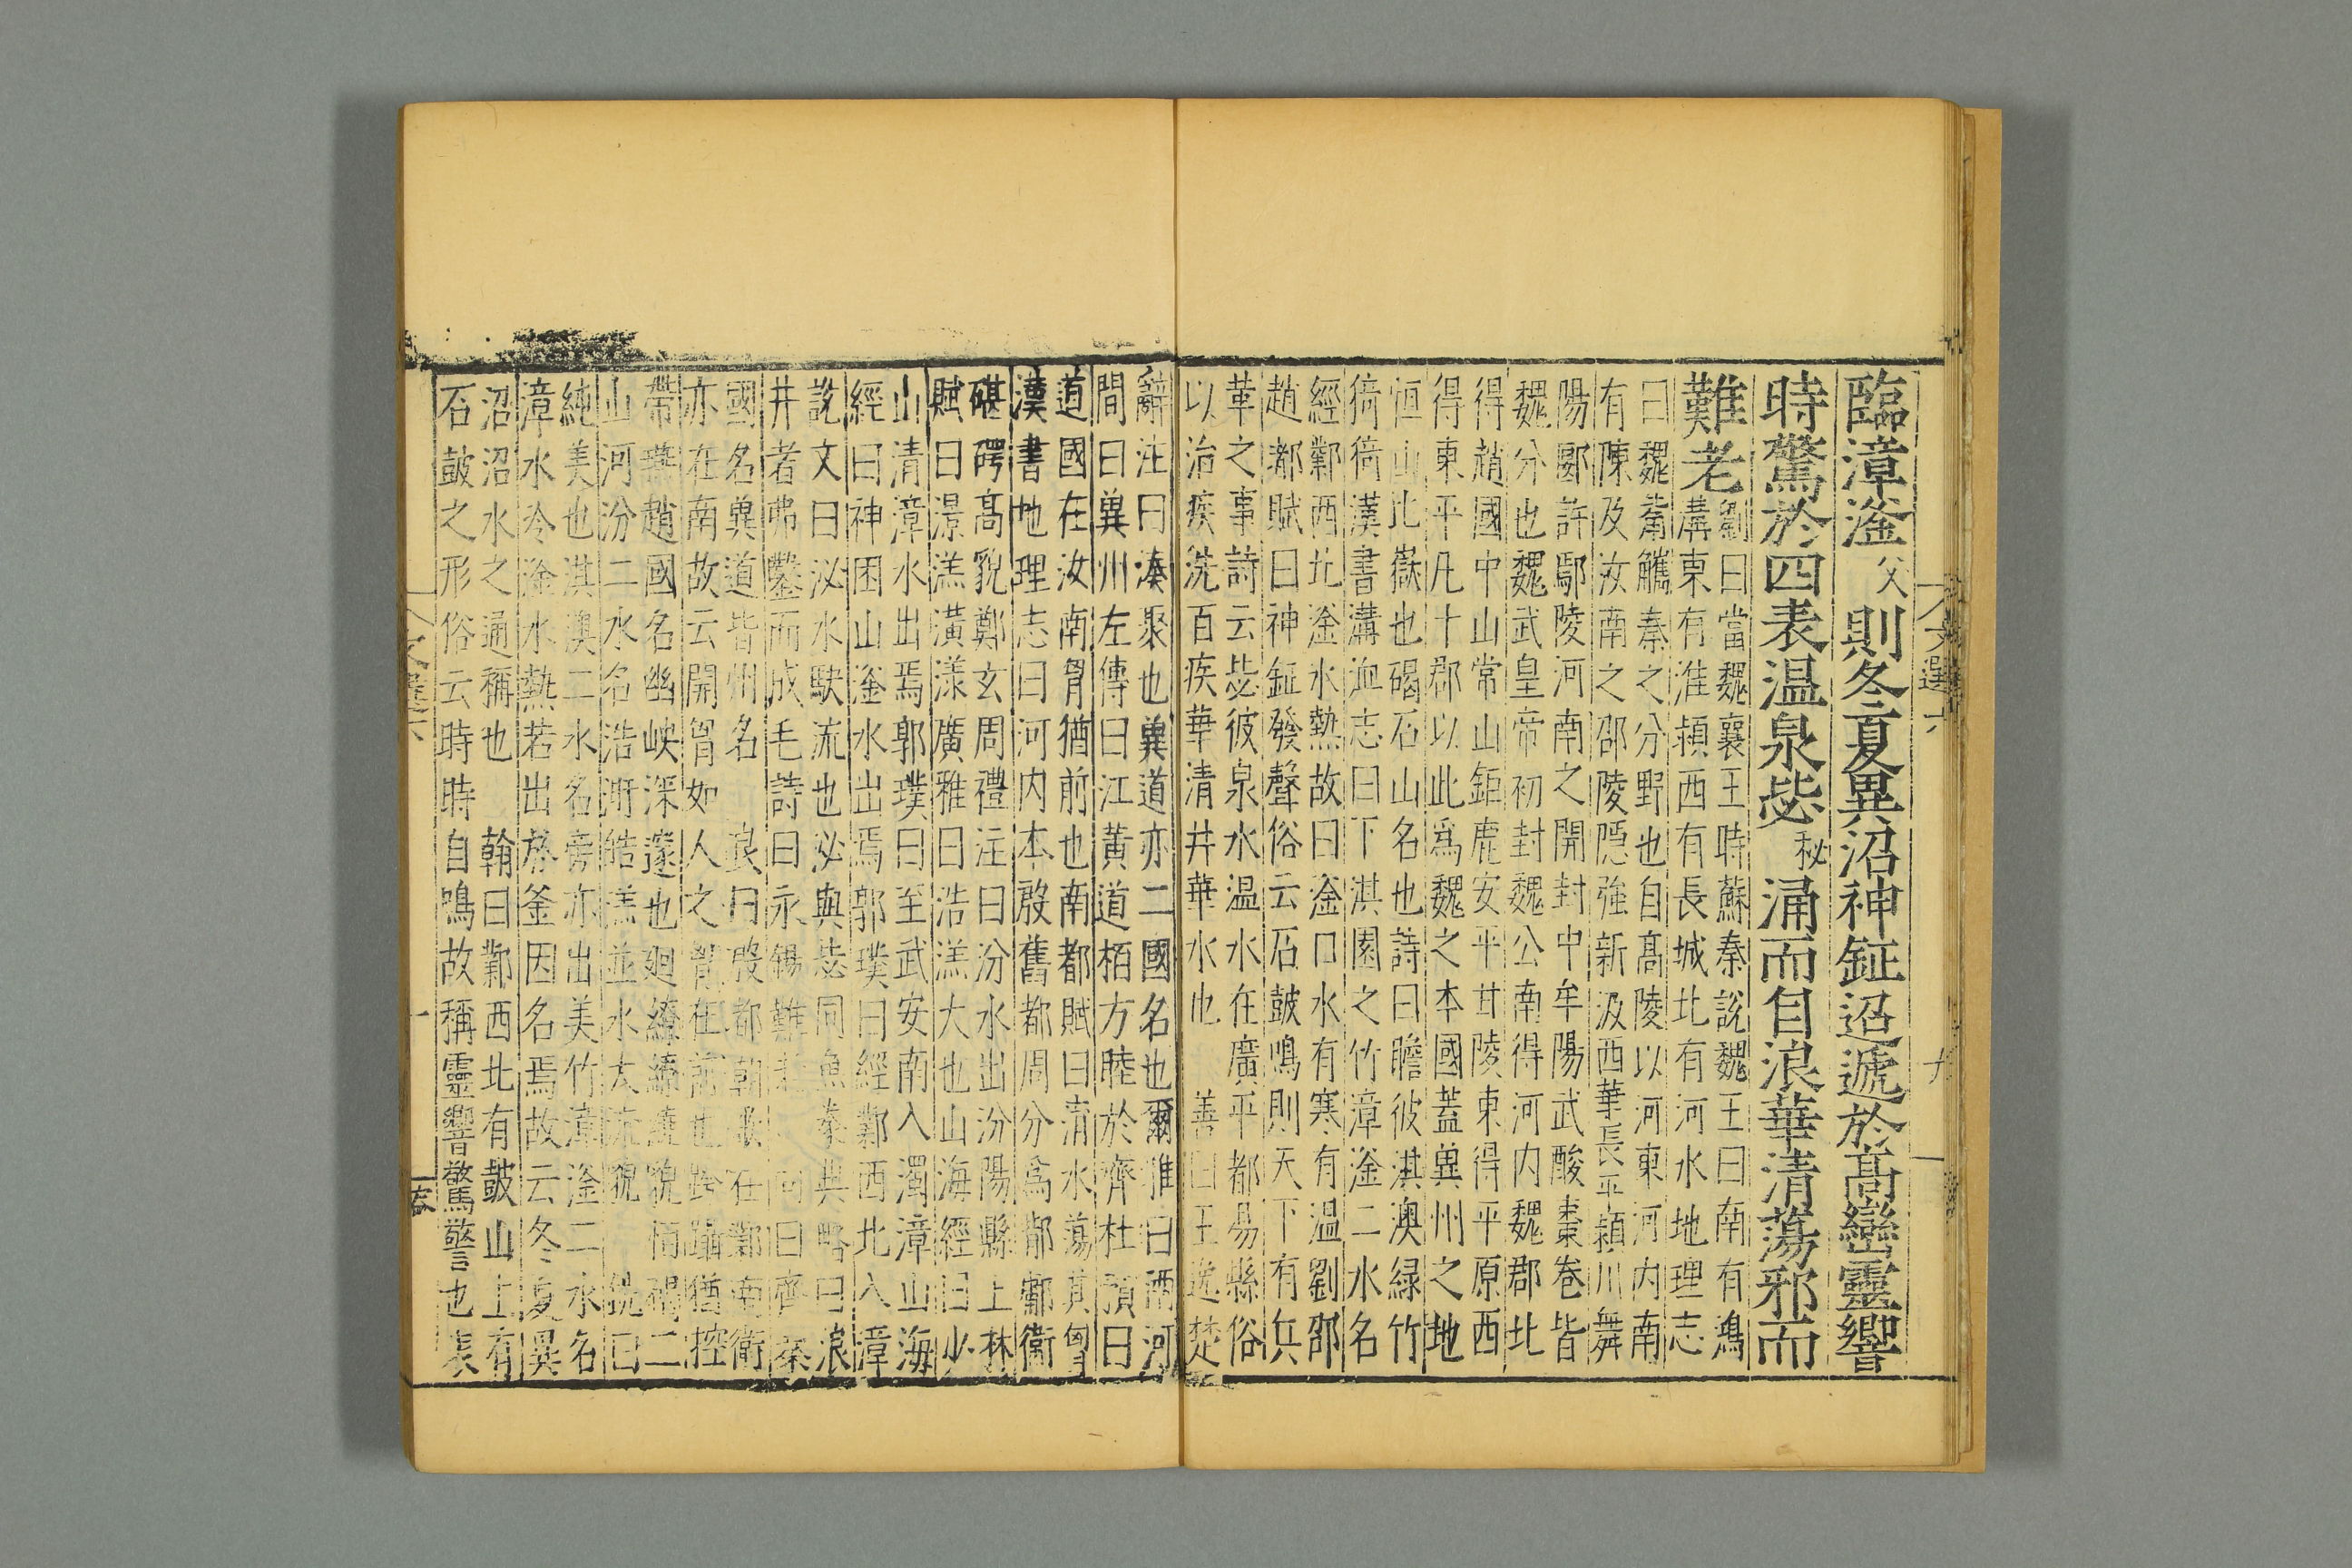 文選六
九
臨漳滏父則冬夏異沼神鉦迢遞於高巒靈響
時驚於四表温泉毖秘涌而自浪華清蕩邪而
難老
劉曰當魏襄王時蘇秦說魏王曰南有鴻
溝東有淮潁西有長城北有河水地理志
曰魏觜觿秦之分野也自高陵以河東河内南
有陳及汝南之邵陵隱強新汲西華長平潁川舞
陽郾許鄢陵河南之開封中牟陽武酸棗卷皆
魏分也魏武皇帝初封魏公南得河内魏郡北
得趙國中山常山鉅鹿安平甘陵東得平原西
得東平凡十郡以此爲魏之本國蓋兾州之地
恒山北嶽也碣石山名也詩曰瞻彼淇澳緑竹
猗猗漢書溝洫志曰下淇園之竹漳滏二水名
經鄴西北滏水熱故曰滏口水有寒有温劉邵
趙都賦曰神鉦發聲俗云石鼓鳴則天下有兵
革之事詩云毖彼泉水温水在廣平都易縣俗
以治疾洗百疾華清井華水也 善曰王逸楚
辭注曰湊聚也兾道亦二國名也爾雅曰兩河
間曰兾州左傳曰江黄道栢方睦於齊杜預曰
道國在汝南胷猶前也南都賦曰淯水蕩其胷
漢書地理志曰河内本殷舊都周分爲鄁鄘衛
碪碍高貌鄭玄周禮注曰汾水出汾陽縣上林
賦曰灝溔潢漾廣雅曰浩溔大也山海經曰少
山清漳水出焉郭璞曰至武安南入濁漳山海
經曰神囷山滏水出焉郭璞曰經鄴西北入漳
說文曰泌水駃流也泌與毖同魚豢典略曰浪
井者弗鑿而成毛詩曰永錫難老 向曰齊秦
國名兾道皆州名 良曰殷都朝歌在鄴南衛
亦在南故云開胷如人之胷在前也跨躡猶控
帶燕趙國名幽峽深邃也廻繚繞貌 恒碣二
山河汾二水名浩汗皓溔並水大流貌 銑曰
純美也淇澳二水名旁亦出美竹漳滏二水名
漳水冷滏水熱若出於釜因名焉故云冬夏異
沼沼水之通稱也 翰曰鄴西北有鼓山上有
石鼓之形俗云時時自鳴故稱靈響驚警也表